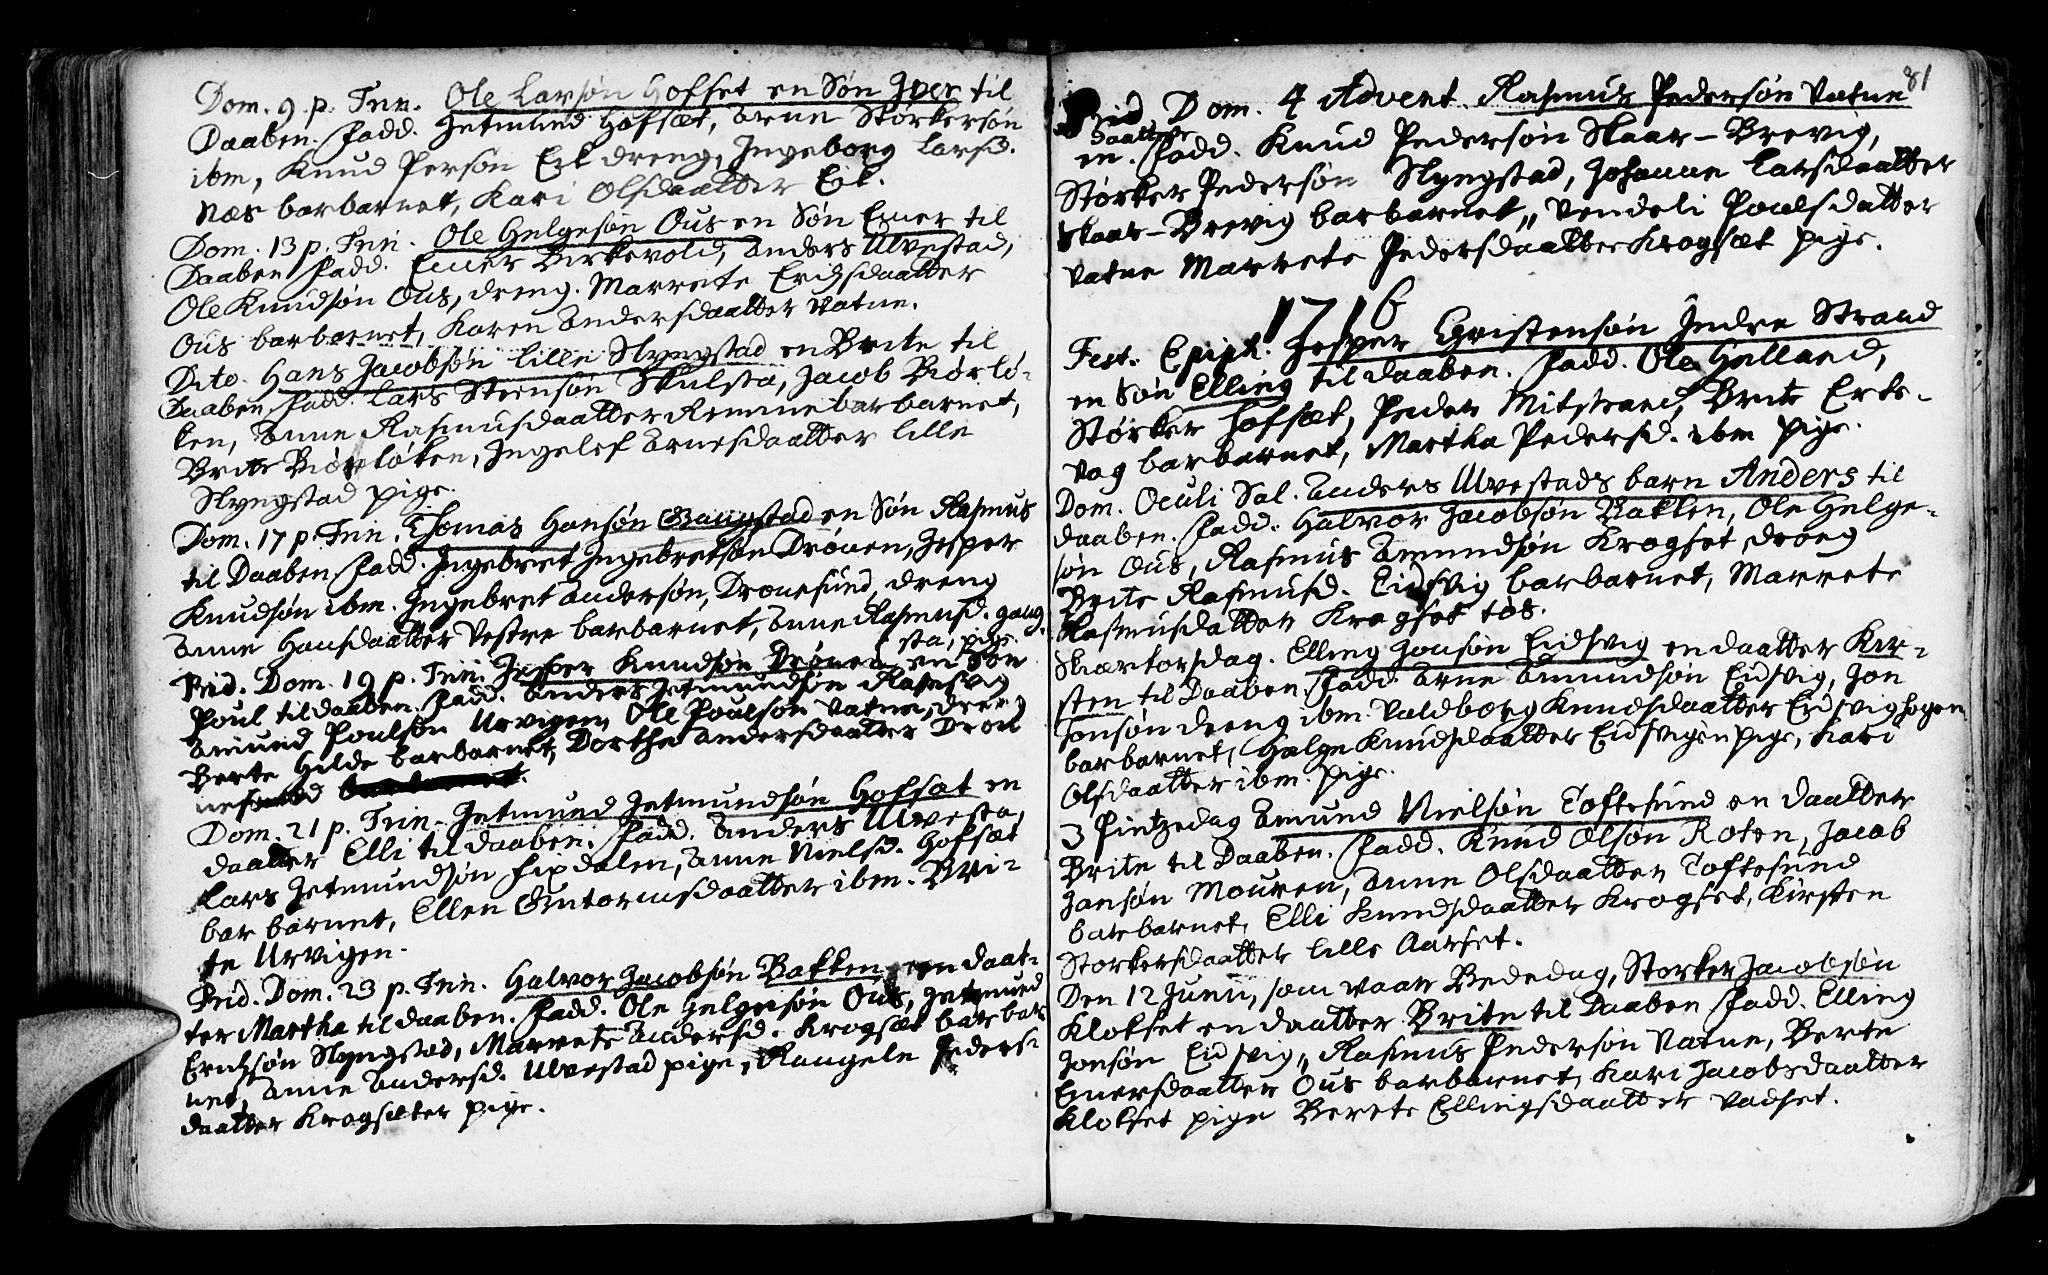 Dom. 9 p. Trin. Ole Larsøn Hofset en Søn Iver til
Daaben. Fadd. Jetmund Hofsæt, Arne Størkersøn
ibm, Knud Persøn Eik dreng, Ingeborg Lars.
Næs barbarnet, Kari Olsdaatter Eik.
Dom. 13 p. Trin. Ole Helgesøn Ous en Søn Emer til
Daaben Fadd. Emer Birkevold, Anders Ulvestad,
Ole Knudsøn Ous, dreng. Marrete Erichsdaatter
Ous barbarnet, Karen Andersdaatter Vatne.
Dito. Hans Jacobsøn lille Slyngstad en Brite til
Daaben Fadd. Lars Steensøn Skulsta, Jacob Biørlø-
ken, Anne Rasmusdaatter Remme barbarnet,
Brite Biørløken, Ingelef Arnesdaatter lille
Slyngstad pige.
Dom. 17 p. Trin. Thomas Hansøn Gangstad en Søn Rasmus
til Daaben. Fadd. Ingebret Ingebretsøn Drønen, Jesper
Knudsøn ibm. Ingebret Andersøn, Dronesund, dreng
Anne Hansdaatter Vestre barbarnet, Anne Rasmusd. Gang-
sta, pige.
Prid. Dom. 19 p. Trin. Jesper Knudsøn Drønen en Søn
Poul til daaben. Fadd. Anders Jetmundsøn
Amund Poulsøn Urvigen, Ole Poulsøn Vatne, dreng
Berte Gilde barbarnet, Dorthe Andersdaatter Dron
nesund
Dom. 21 p. Trin. Jetmund Jetmundsøn Hofsæt en
daatter Elli til daaben. Fadd. Anders Ulvesta,
Lars Jetmundsøn Fixdalen, Anne Nielsd. Hofsæt
bar barnet, Ellen Gutormsdaatter ibm. Bri-
te Urvigen.
Prid. Dom. 23 p. Trin. Halvor Jacobsøn Bakken en daat-
ter Martha til daaben. Fadd. Ole Helgesøn Ous, Jetmund
Erichsøn Slyngstad, Marrete Andersd. Krogsæt bar bar
net, Anne Andersd. Ulvestad pige, Rangele Peders-
daatter Krogsæter pige.
81
Prid Dom. 4 Advent. Rasmus Pedersøn Vatne
daatter
en. Fadd. Knud Pedersøn Skaar-Brevig,
Størker Pedersøn Slyngstad, Johanne Larsdaatter
Skaar-Brevig barbarnet, Vendeli Poulsdatter
Vatne Marrete Pedersdaatter Krogsæt pige.
1716
Fest. Epiph. Jesper Christensøn Indre Strand
en Søn Elling til daaben. Fadd. Ole Helland,
Størker Hofsæt, Peder Mitstrand, Brite Erke-
vog barbarnet, Martha Pedersd. ibm pige.
Dom. Oculi Sal. Anders Ulvestads barn Anders til
daaben. Fadd. Halvor Jacobsøn Bakken, Ole Helge-
søn Ous, Rasmus Amundsøn Krogset dreng
Brite Rasmusd. Eidsvig barbarnet, Marrete
Rasmusdatter Krogset tøs.
Skærtorsdag. Elling Jonsøn Eidsvig en daatter Kir-
sten til Daaben. Fadd Arne Amundsøn Eidsvig, Jon
Jonsøn dreng ibm. Valdborg Knudsdaatter Eidsvighogen
barbarnet, Helge Knudsdaatter Eidsvigen pige, Kari
Olsdaatter ibm. pige.
3 Pintzedag Amund Nielsøn Toftesund en daatter
Brite til Daaben. Fadd. Knud Olsøn Roten, Jacob
Jonsøn Mouren, Anne Olsdaatter Toftesund
barbarnet, Elli Knudsdaatter Krogset, Kirsten
Storkersdaatter lille Aarset.
Den 12 Junii, som vaar Bededag, Storker Jacobsøn
Klokset en daatter Brite til Daaben Fadd. Elling
Jonsøn Eidsvig, Rasmus Pedersøn Vatne, Berte
Emersdaatter Ous barbarnet, Kari Jacobsdaatter
Klokset pige Berete Ellingsdaatter Vadset.